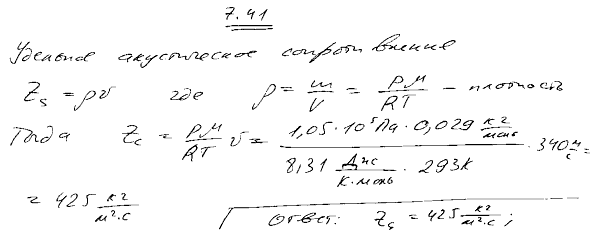 7.41
Удельное акустическое сопротивление
Z_s = ρv где ρ = m/V = Pμ/RT – плотность
Тогда Z_s = Pμ/RT v = (1,05 · 10⁵ Па · 0,029 кг/моль)/(8,31 Дж/К·моль · 293К) · 340 м/с =
= 425 кг/м²·с Ответ: Z_s = 425 кг/м²·с;